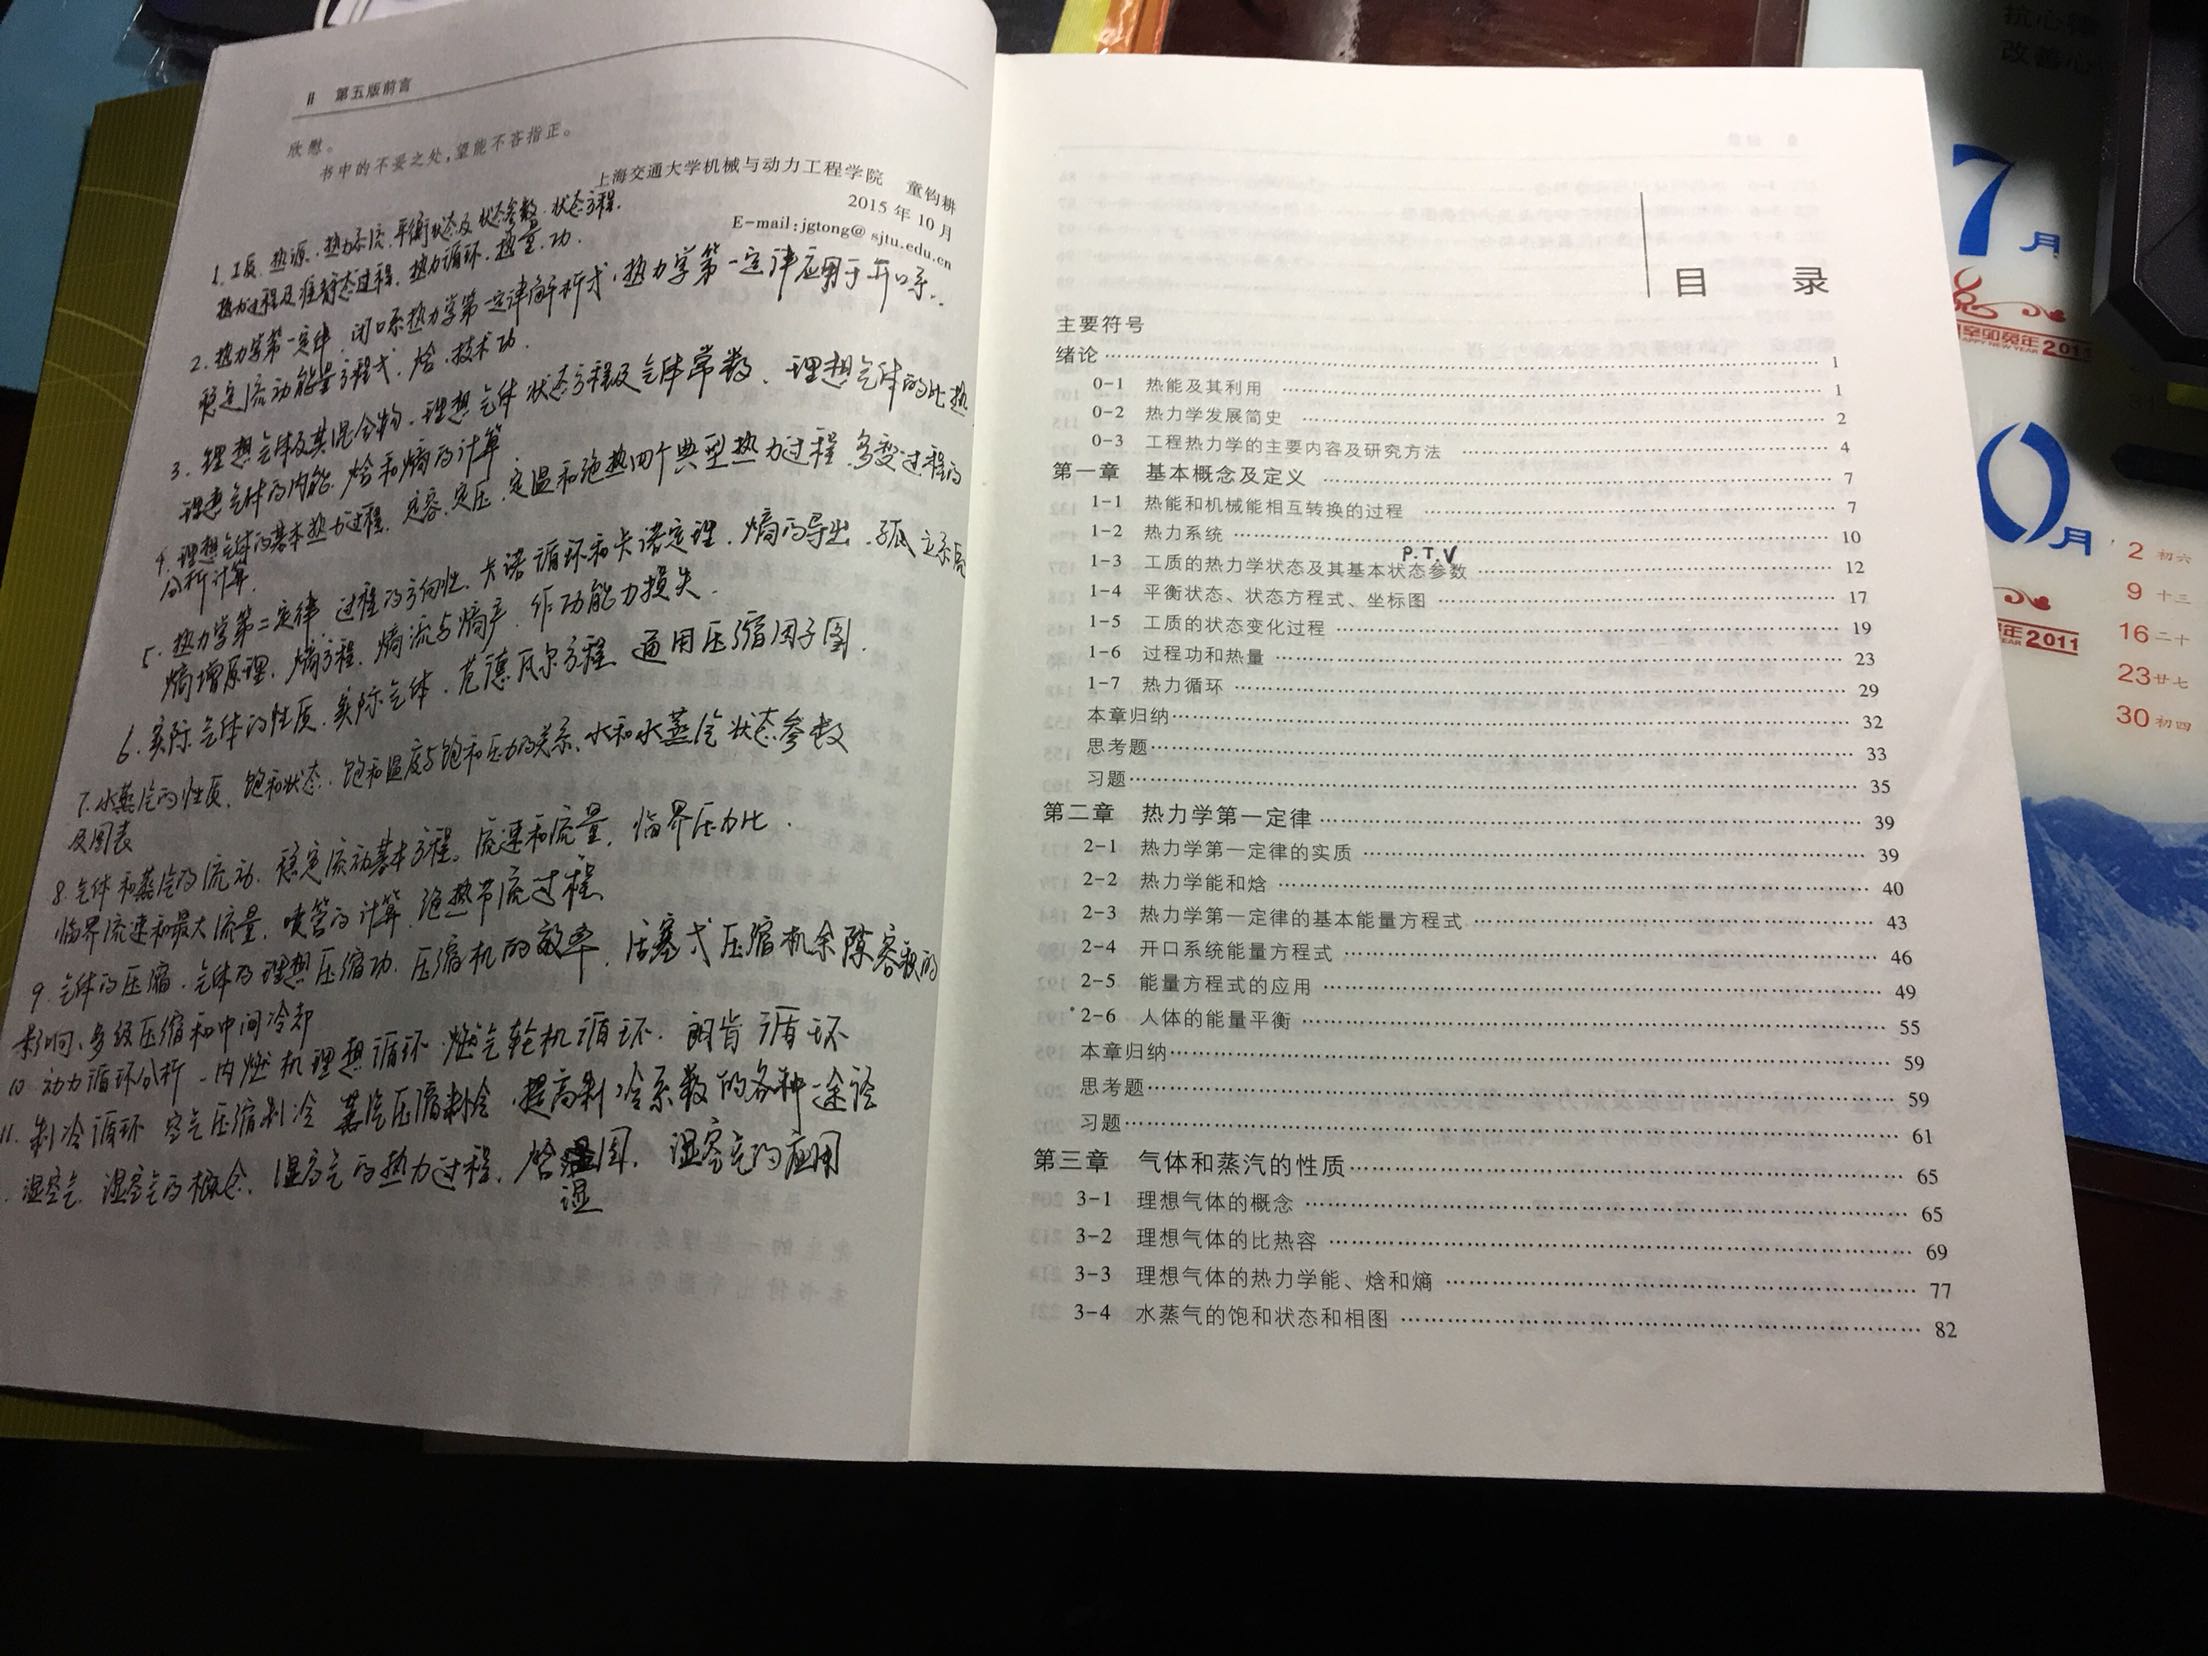 II 第五版前言
欣慰。
书中的不妥之处,望能不吝指正。
上海交通大学机械与动力工程学院 童钧耕
2015 年 10 月
E-mail:jgtong@sjtu.edu.cn
1. 工质、热源、热力系统、平衡状态及状态参数、状态方程.
热力过程及准静态过程、热力循环、热量、功.
2. 热力学第一定律、闭口系热力学第一定律解析式,热力学第一定律应用于开口系..
稳定流动能量方程式、焓、技术功.
3. 理想气体及其混合物、理想气体状态方程及气体常数、理想气体的比热
理想气体的内能、焓和熵的计算.
4. 理想气体的基本热力过程、定容、定压、定温和绝热四个典型热力过程,多变过程的
分析计算.
5. 热力学第二定律 过程的方向性、卡诺循环和卡诺定理、熵的导出、孤立系统
熵增原理、熵方程、熵流与熵产、作功能力损失.
6. 实际气体的性质、实际气体、范德瓦尔方程、通用压缩因子图.
7. 水蒸汽的性质、饱和状态、饱和温度与饱和压力的关系、水和水蒸汽状态参数
及图表
8. 气体和蒸汽的流动、稳定流动基本方程、流速和流量、临界压力比.
临界流速和最大流量、喷管的计算、绝热节流过程
9. 气体的压缩、气体的理想压缩功、压缩机的效率、活塞式压缩机余隙容积的
影响、多级压缩和中间冷却
10 动力循环分析、内燃机理想循环、燃气轮机循环、朗肯循环
11. 制冷循环 空气压缩制冷 蒸汽压缩制冷、提高制冷系数的各种途径
湿空气、湿空气的概念、湿空气的热力过程、焓湿图、湿空气的应用
目 录
主要符号
绪论 …… 1
0-1 热能及其利用 …… 1
0-2 热力学发展简史 …… 2
0-3 工程热力学的主要内容及研究方法 …… 4
第一章 基本概念及定义 …… 7
1-1 热能和机械能相互转换的过程 …… 7
1-2 热力系统 …… 10
P.T.V
1-3 工质的热力学状态及其基本状态参数 …… 12
1-4 平衡状态、状态方程式、坐标图 …… 17
1-5 工质的状态变化过程 …… 19
1-6 过程功和热量 …… 23
1-7 热力循环 …… 29
本章归纳 …… 32
思考题 …… 33
习题 …… 35
第二章 热力学第一定律 …… 39
2-1 热力学第一定律的实质 …… 39
2-2 热力学能和焓 …… 40
2-3 热力学第一定律的基本能量方程式 …… 43
2-4 开口系统能量方程式 …… 46
2-5 能量方程式的应用 …… 49
*2-6 人体的能量平衡 …… 55
本章归纳 …… 59
思考题 …… 59
习题 …… 61
第三章 气体和蒸汽的性质 …… 65
3-1 理想气体的概念 …… 65
3-2 理想气体的比热容 …… 69
3-3 理想气体的热力学能、焓和熵 …… 77
3-4 水蒸气的饱和状态和相图 …… 82
抗心
改善心
7月
辛卯癸年
HAPPY NEW YEAR 2011
0月
年2011
2 初六
9 十三
16 二十
23 廿七
30 初四